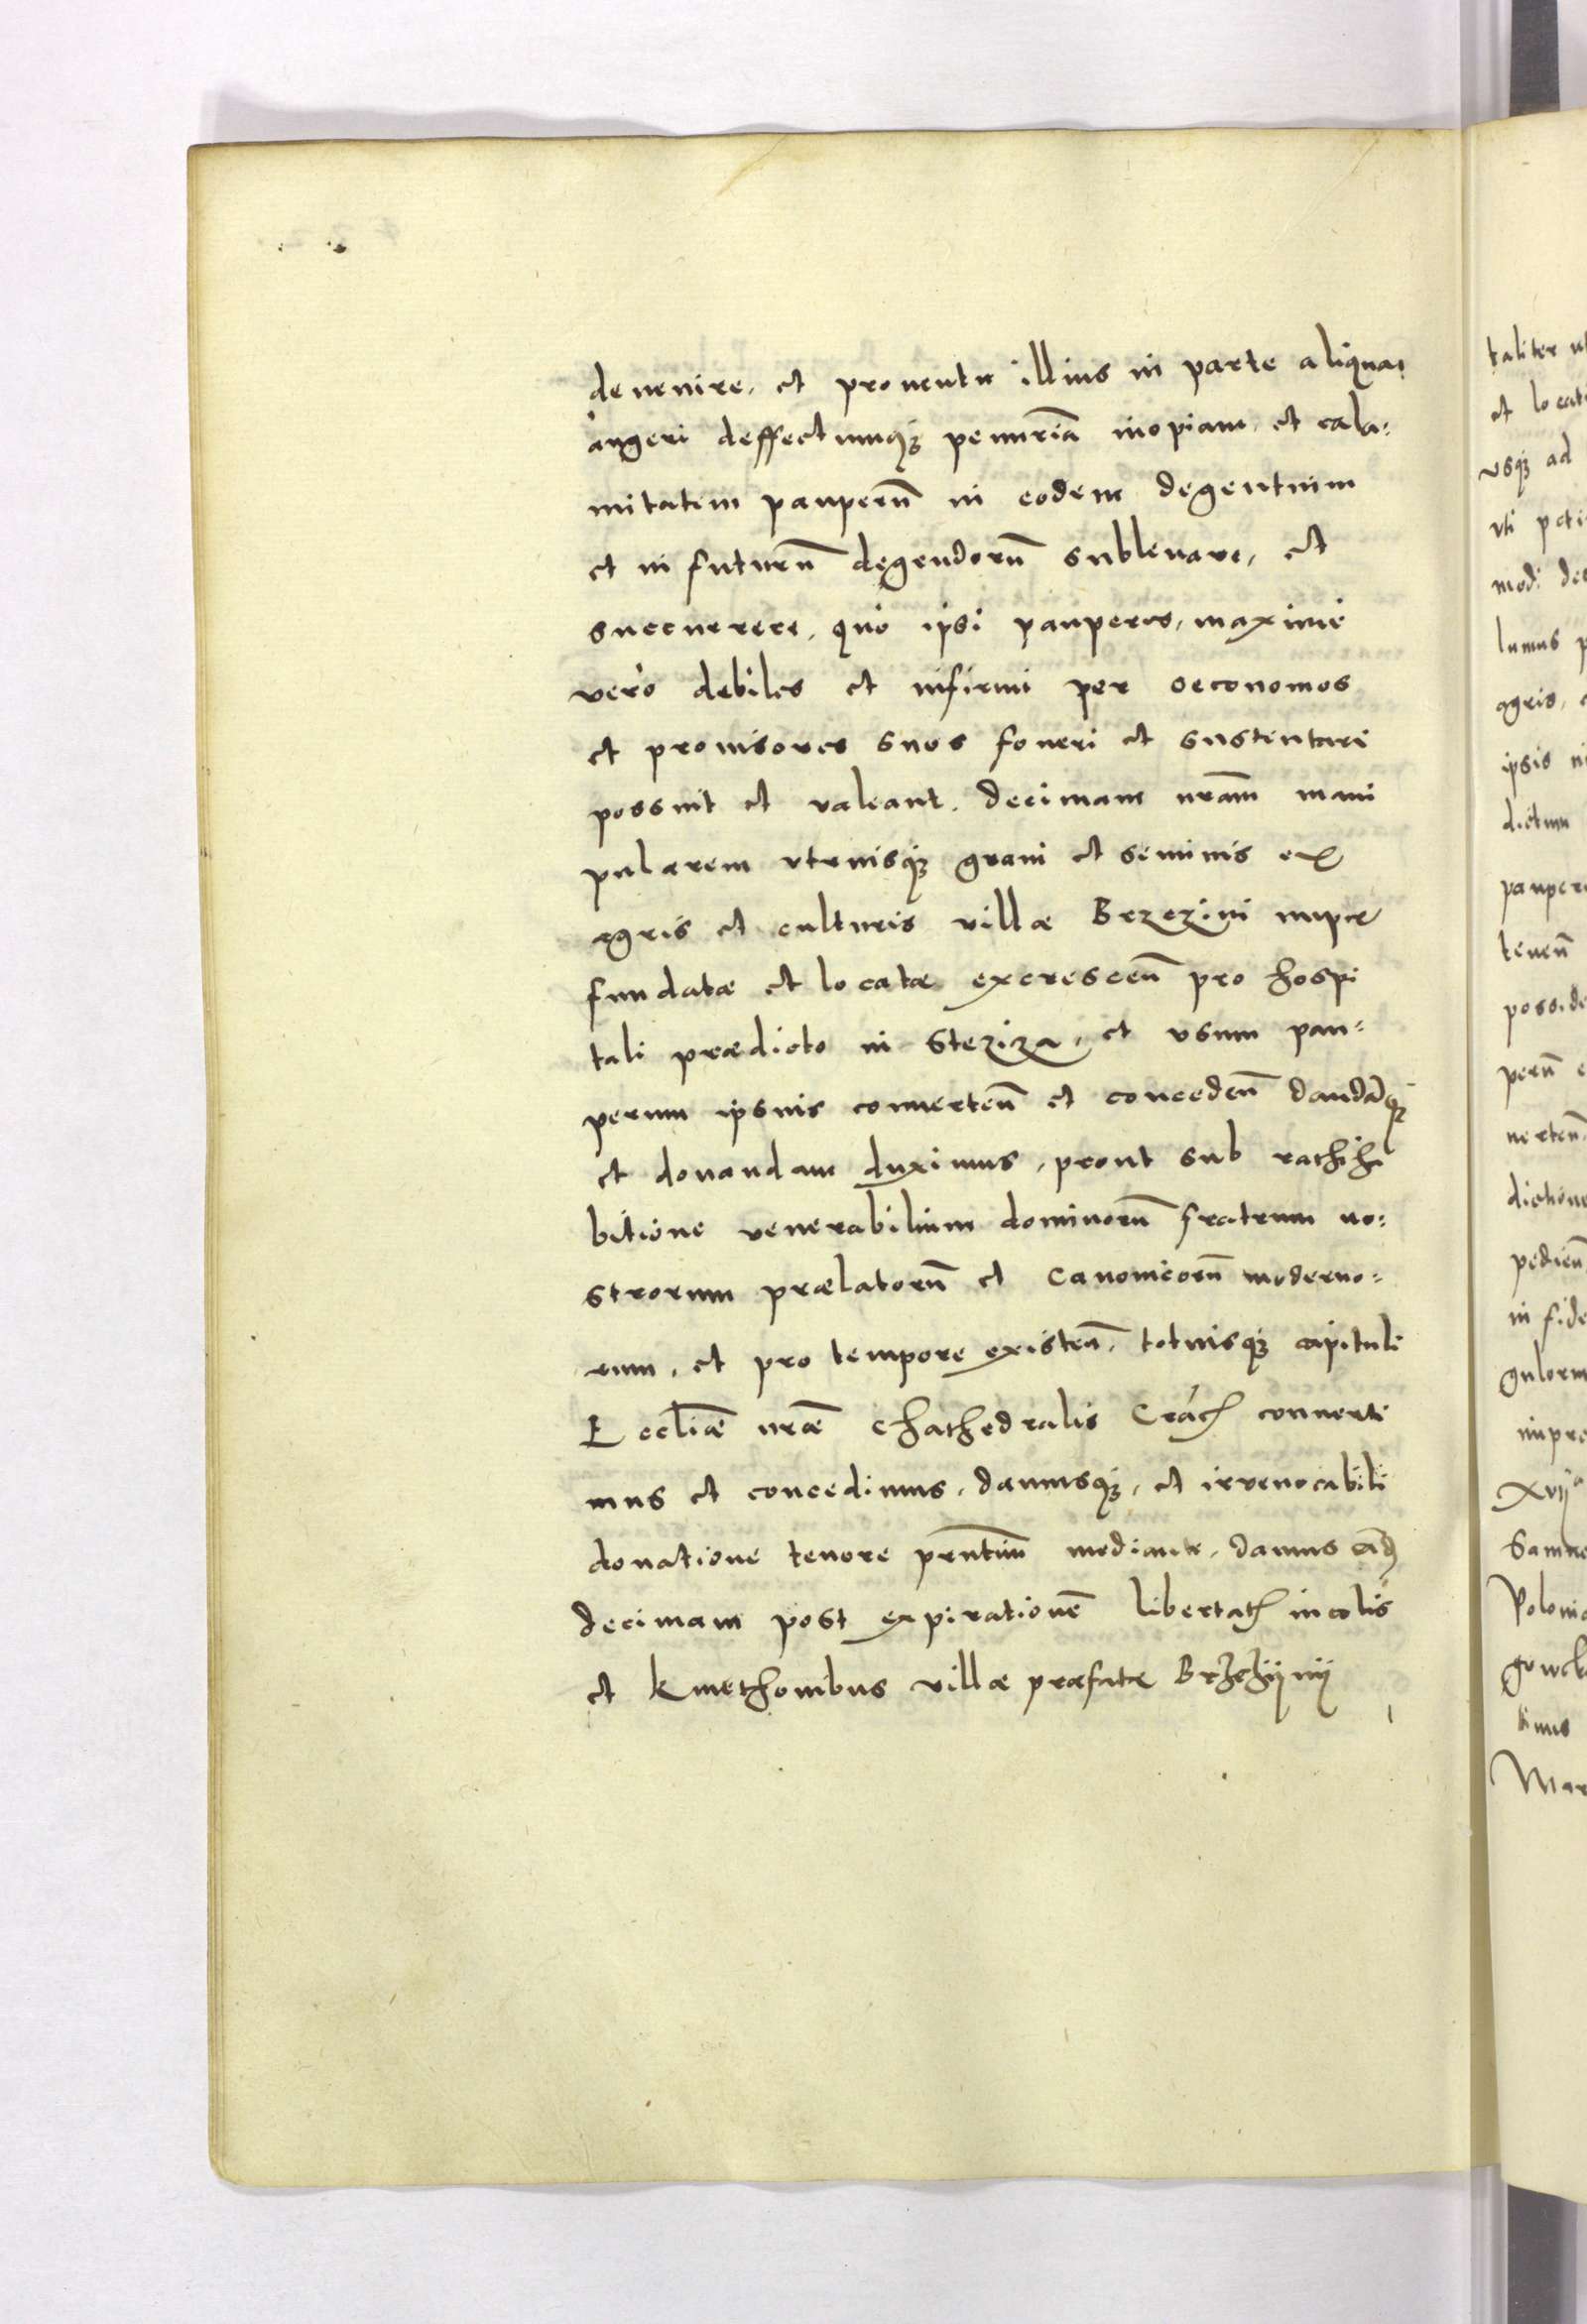 deuenire, et prouentu illius in parte aliqua,
augeri deffectumq3 penuriã inopiam, et cala=
mitatem pauperũ in eodem degentium
et in futurũ degendorũ subleuare, et
succurrere, quo ipsi pauperes, maxime
vero debiles et infirmi per oeconomos
et prouisores suos foueri et sustentari
possint et valeant. decimam nr̃am mani
pularem vtriusq3 grani et seminis ex
agris et culturis villæ Brzezini nuper
fundatæ et locatæ excrescen̄ pro hospi
tali prædicto in Steziza, et vsum pau=
perum ipsius conuerten̄ et conceden̄ dandãq3
et donandam duximus, prout sub rathihi
bitione venerabilium dominorũ fratrum no=
strorum prælatorũ et Canonicorũ moderno=
rum, et pro tempore existen̄, totiusq3 capituli
Eccl̃iæ nr̃æ Chathedralis Crac̃ conuerti
mus et concedimus, damusq3, et irreuocabili
donatione tenore pñtium mediante, damus eãd
decimam post expirationẽ libertat̃ incolis
et kmethonibus villæ præfatæ Brzezijnij
taliter
et locat
vsq3 ad
vti peti
modi de
lumus
agris,
ipsis
dictum
paupere
tenen̄
posside
perũ
uerten̄
diction
pedien̄
in fide
gulorum
impre
xvij
Samue
Polonia
gowck
Mar